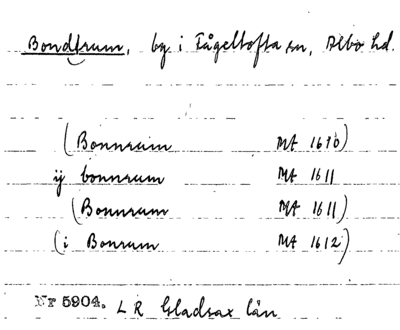 Bondrum, by i Fågeltofta sn, Albo hd.
(Bonnrum MA 1610)
ij bonnrum MA 1611
(Bonnrum MA 1611)
(i Bonrum MA 1612)
Nr 5904. L R Gladsax län